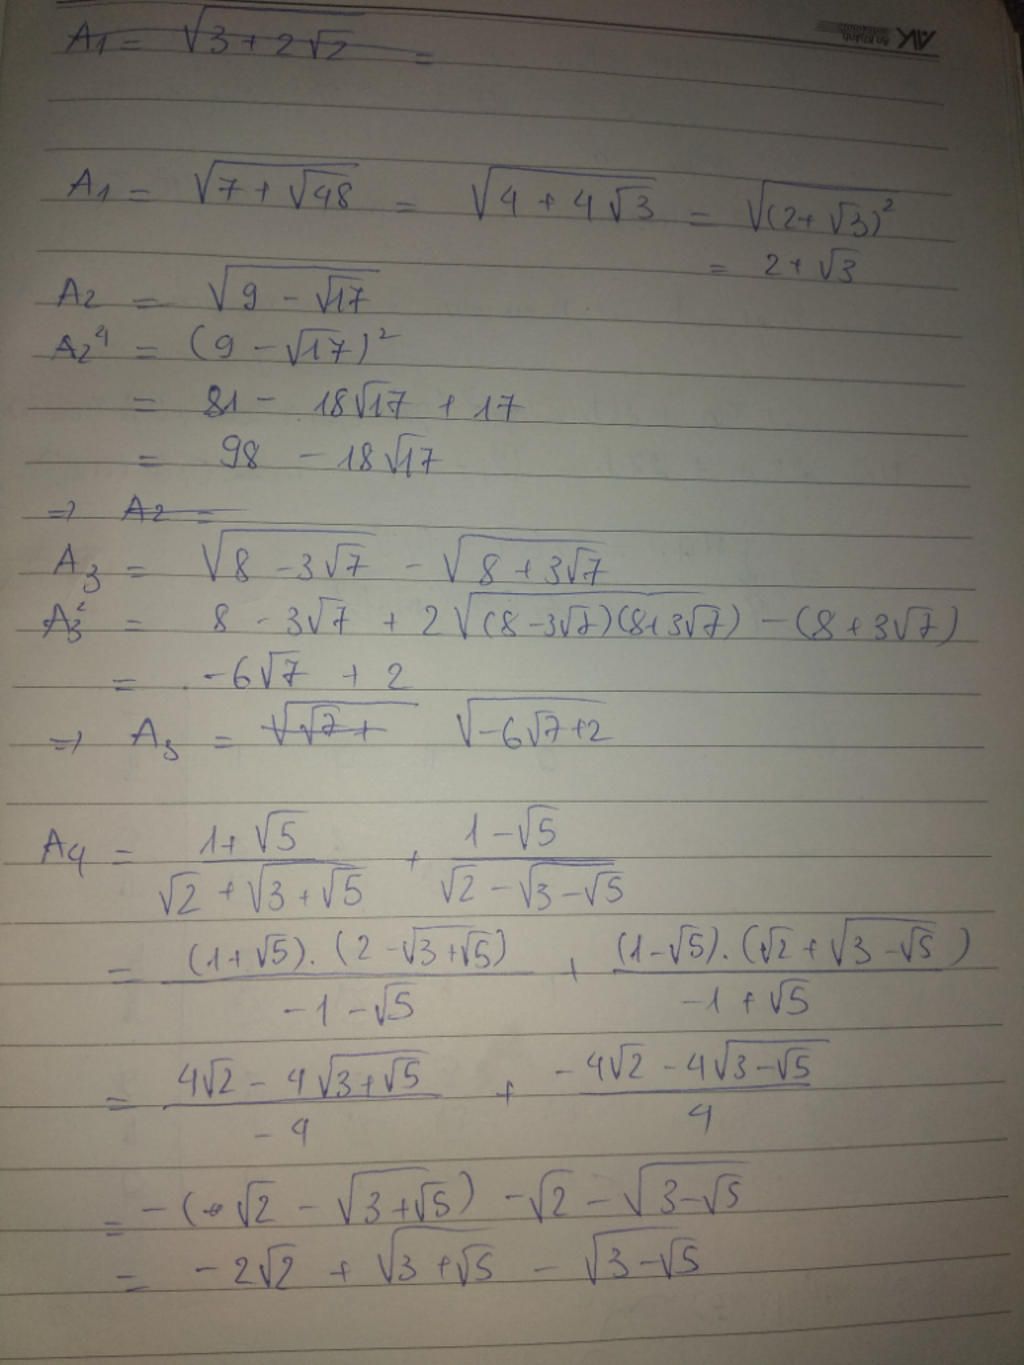 A1 = √(3 + 2√2) =
AK
A1 = √(7 + √48) = √(4 + 4√3) = √((2+√3)²)
= 2 + √3
A2 = √(9 - √17)
A2⁴ = (9 - √17)²
= 81 - 18√17 + 17
= 98 - 18√17
⇒ A2 =
A3 = √(8 - 3√7) - √(8 + 3√7)
A3² = 8 - 3√7 + 2√((8-3√7)(8+3√7)) - (8 + 3√7)
= -6√7 + 2
⇒ A3 = √(√7 + √(-6√7+2)
A4 = (1+√5)/(√2 + √(3+√5)) + (1-√5)/(√2 - √(3-√5))
= ((1+√5).(2-√(3+√5)))/(-1-√5) + ((1-√5).(√2+√(3-√5)))/(-1+√5)
= (4√2 - 4√(3+√5))/(-4) + (-4√2 - 4√(3-√5))/4
= -(√2 - √(3+√5)) - √2 - √(3-√5)
= -2√2 + √(3+√5) - √(3-√5)